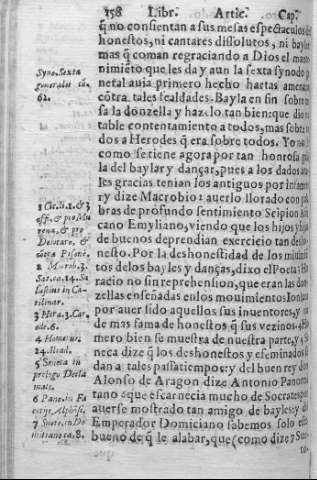 158 Libr. Artic. Cap.
q̃ no consientan a sus mesas espectaculos de
honestos, ni cantares dissolutos, ni baylar
mas q̃ coman regraciando a Dios el mante
nimiẽto que les da y aun la sexta synodo
netal auia primero hecho hartas amenaz
cõtra tales fealdades. Bayla en fin sobre
sa la donzella y hazelo tan bien: que dio
table contentamiento a todos, mas sobre to
dos a Herodes q̃ era sobre todos. Yo no
como se tiene agora por tan honrosa
la del baylar y dançar, pues a los dados a
les gracias tenian los antiguos por infam
ry dize Macrobio: auerlo llorado con pal
bras de profundo sentimiento Scipion Afri
cano Emyliano, viendo que los hijos y hijas
de buenos deprendian exercicio tan des
nesto. Por la deshonestidad de los mouimi
tos de los bayles y danças, dixo el Poeta Ho
racio no sin reprehension, que eran las don
zellas enseñadas en los mouimientos Ionicos
por auer sido aquellos sus inuentores, y
de mas fama de honestos q̃ sus vezinos. Ho
mero bien se muestra de nuestra parte, y Se
neca dize q̃ los deshonestos y efeminados se
dan a tales passatiempos: y del buen rey don
Alonso de Aragon dize Antonio Panormi
tano que escarnecia mucho de Socrates por
auerse mostrado tan amigo de bayles: y del
Emperador Domiciano sabemos solo esto
bueno de q̃ le alabar, que (como dize 7 Sue
to
Syno. Sexta
generalis cã.
62.
1 Cic. li. 1. & 3
off. & pro Mu
rena, & pro
Deiotaro, &
cõtra Pisonẽ.
2 Macrob. 3.
Satur. ca. 14. Sa
lustius in Ca
tilinar.
3 Hora. 3. Car.
ode. 6.
4 Homerus.
24. Iliad.
5 Seneca in
prologo Decla
mat.
6 Pano. in Fa
ctis Alphõsi.
7 Sueto. in Do
mitiano ca. 8.